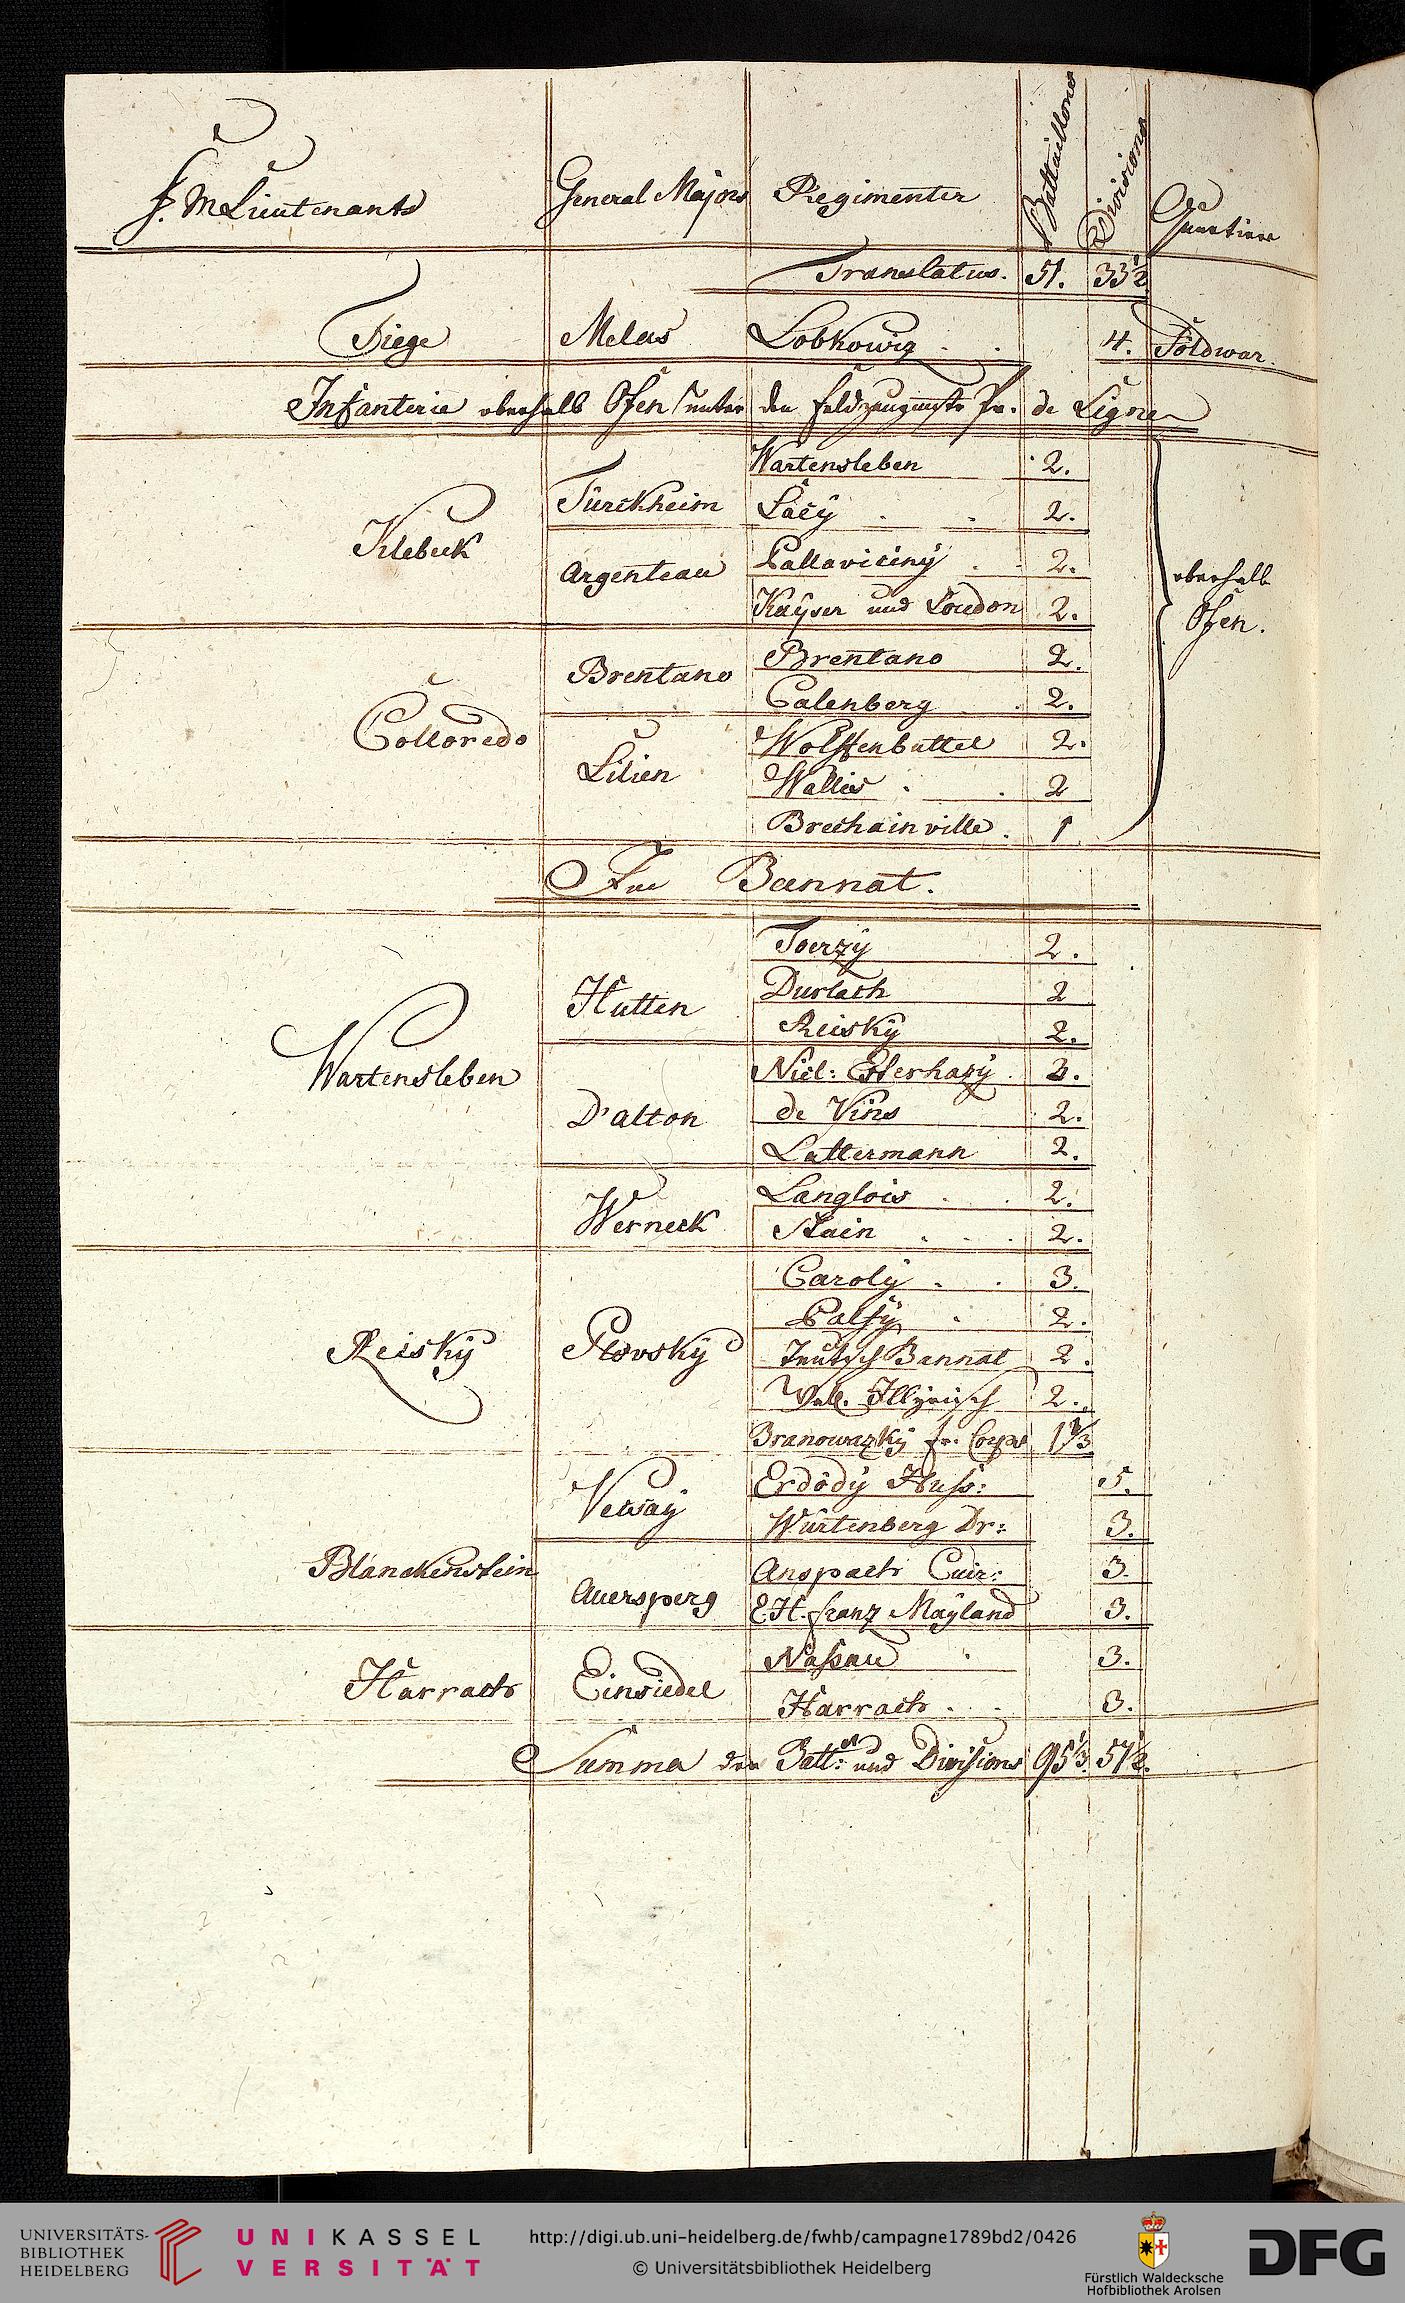 F. M Lieutenants General Majors Regimenter Battaillons Divisions Quartiere
Translatus. 51. 33 1/2
Siege Melas Lobkowiz . . 4. Földwar.
Infanterie oberhalb Ofen unter den Feldzeugmstr Pr. de Ligne
Wartensleben 2.
Türckheim Lacÿ . . 2.
Klebeck
Argenteau Pallavicinÿ . . 2.
oberhalb
Kaÿser und Loudon 2.
Ofen.
Brentano Brentano 2.
Calenberg . 2.
Colloredo
Wolffenbüttel 2.
Lilien Wallis . . 2
Brechainville . 1
Im Bannat.
Toerzÿ 2.
Hutten Durlach 2
Reiskÿ 2.
Wartensleben
Nicl: Esterhazÿ . 3.
D'alton de Vins 2.
Lattermann 2.
Langlois . . 2.
Werneck Stain . . . 2.
Carolÿ . . 3.
Palfÿ . 2.
Reiskÿ Teutsch Bannat 2.
Wal. Illÿrisch 2.
Branowazkÿ fr. Corps 1 1/3
Vecsaÿ Erdödÿ Huss: 5.
Würtenberg Dr: 3.
Blanckenstein
Auersperg Anspach Cuir: 3.
E.H. franz Maÿland 3.
Harrach Einsiedel Nassau . 3.
Harrach . . 3.
Summa der Batt: und Divisions 95 1/3. 57 1/2.
UNIVERSITÄTS-
BIBLIOTHEK
HEIDELBERG
UNIKASSEL
VERSITÄT
http://digi.ub.uni-heidelberg.de/fwhb/campagne1789bd2/0426
© Universitätsbibliothek Heidelberg
Fürstlich Waldecksche
Hofbibliothek Arolsen
DFG